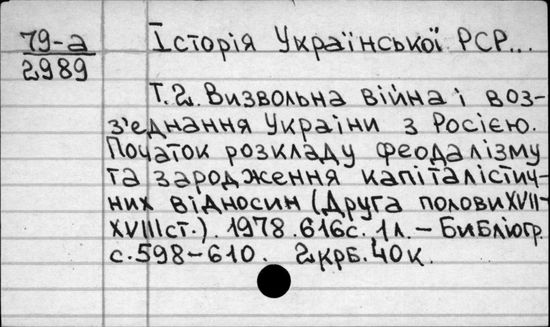 79-а
2989
Історія Української РСР...
Т.2. Визвольна війна і воз-
з'еднання Украіни з Росією.
Початок розкладу феодалізму
та зародження капіталістич-
них відносин (Друга полови XVII-
XVIII ст.). 1978. 616с. 1л. – Библіогр.
с.598-610. 2крб.40к.